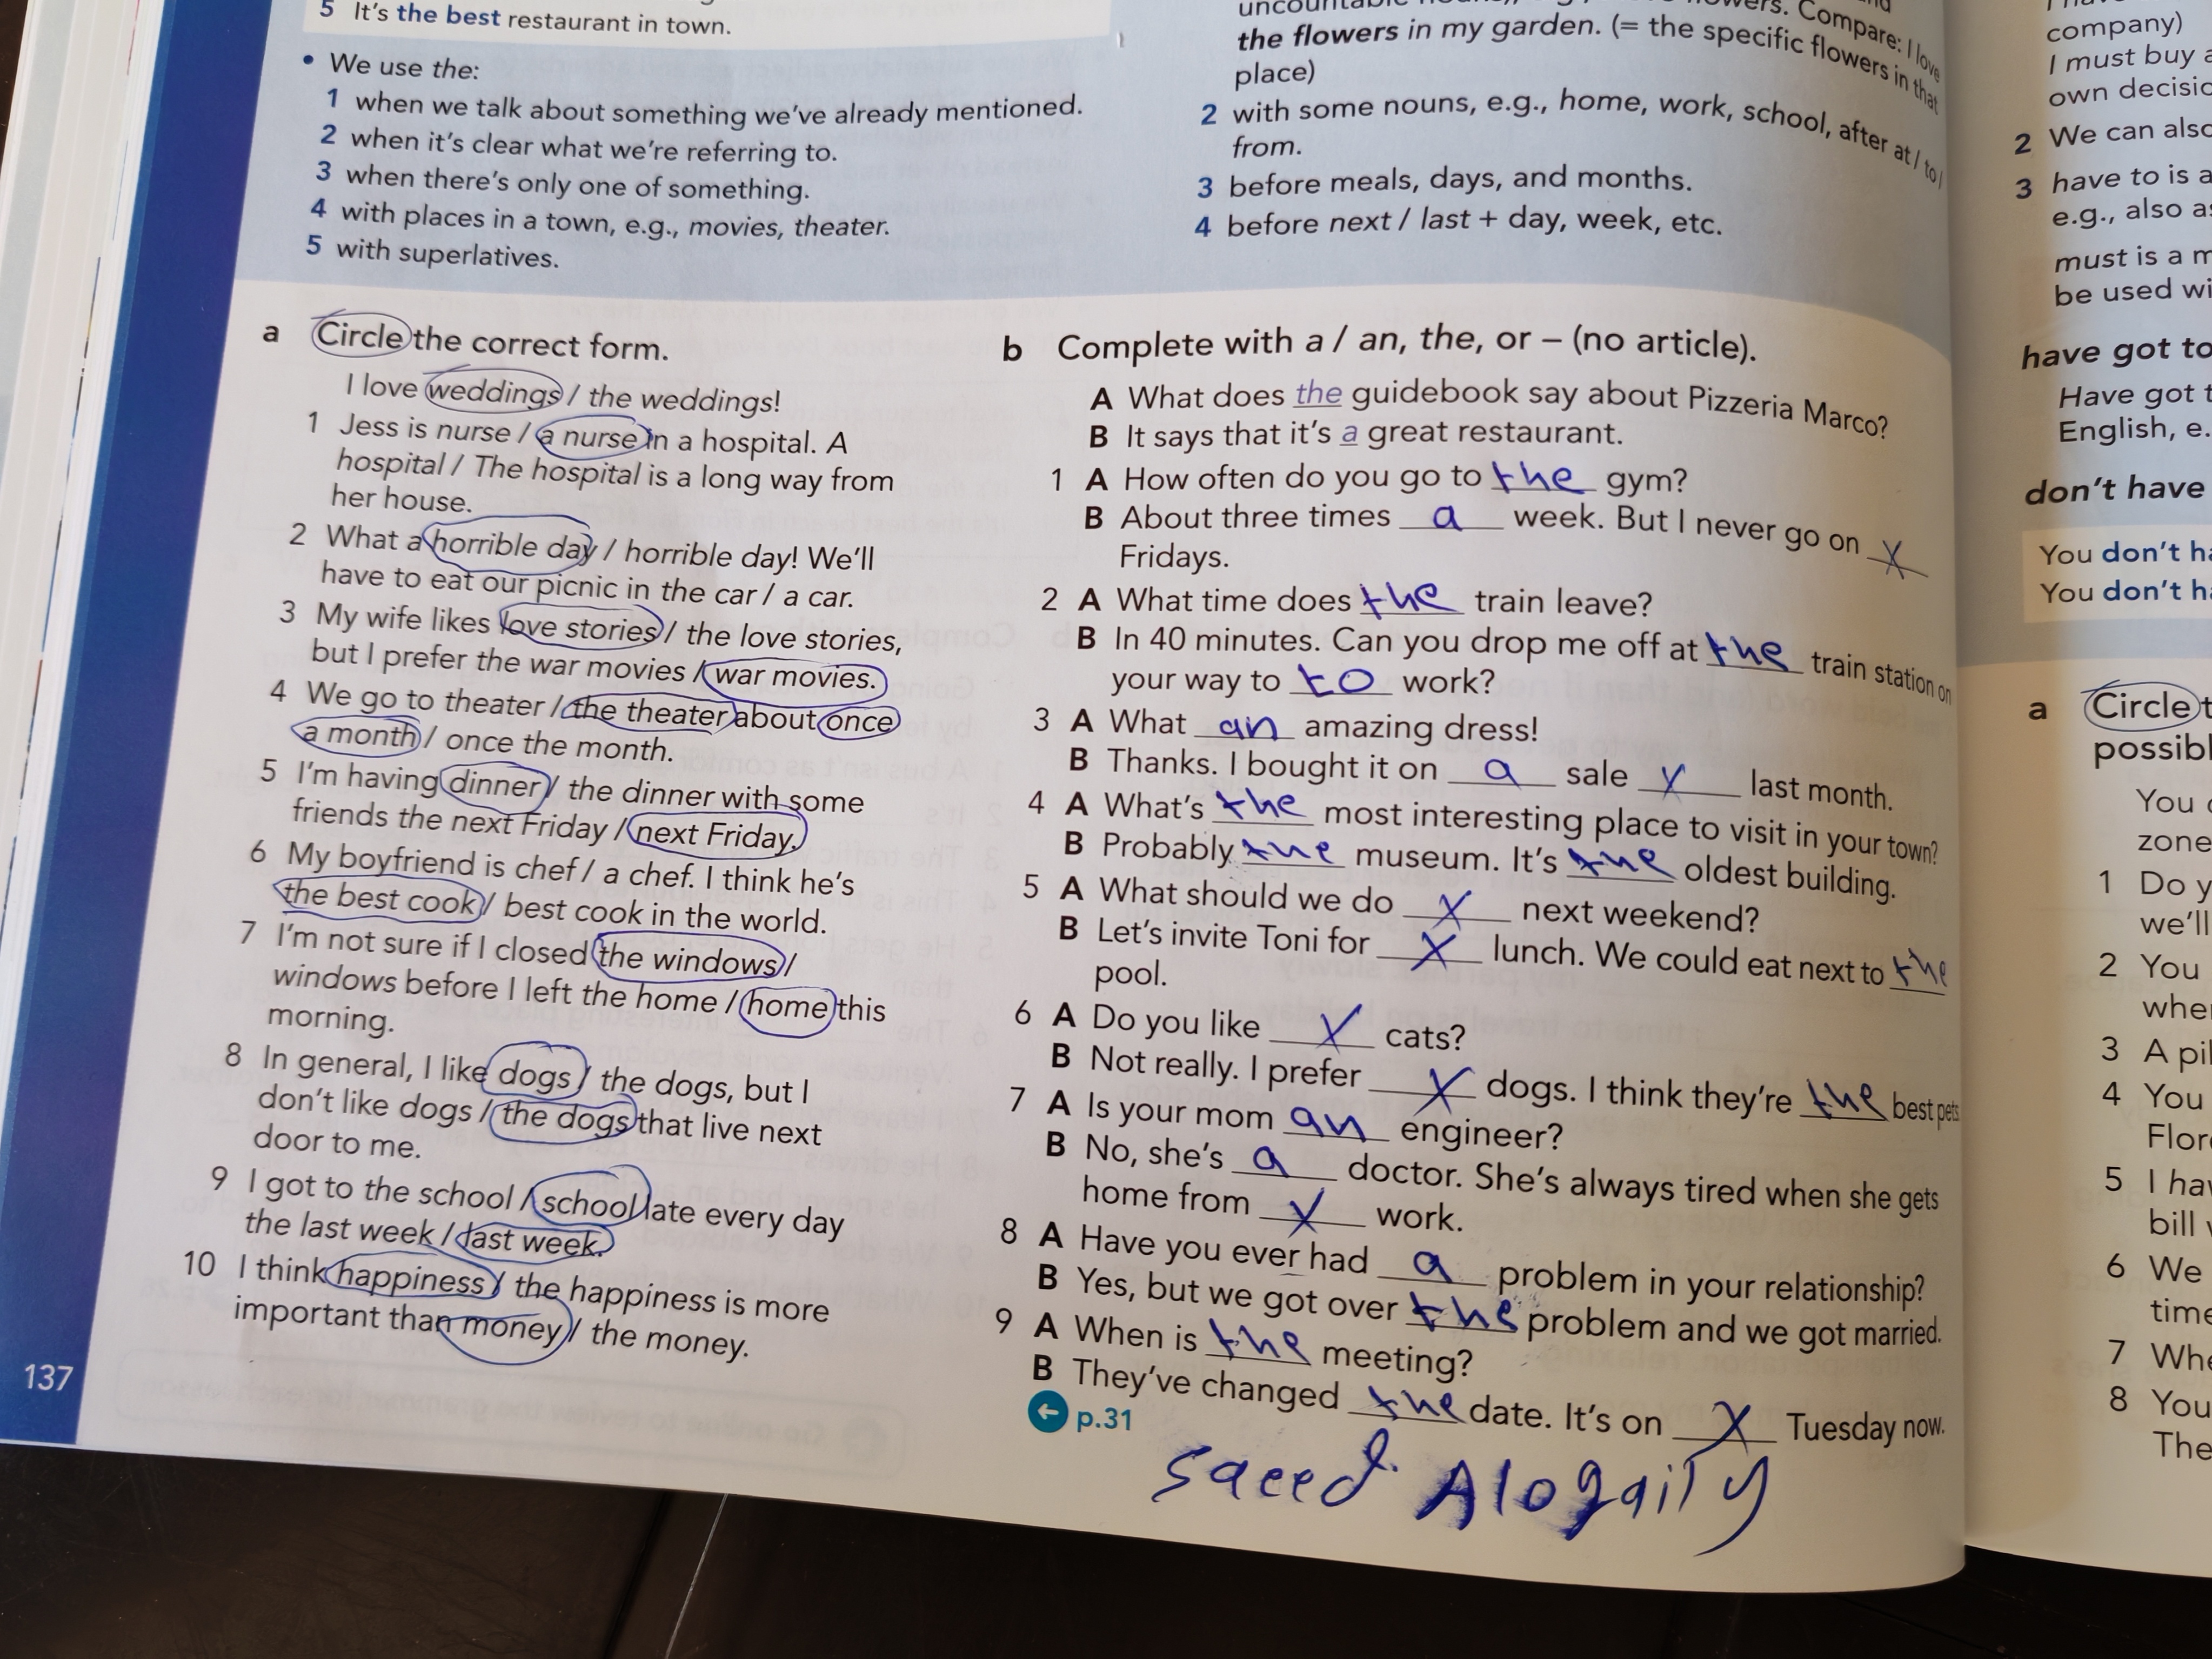 5 It's the best restaurant in town.
• We use the:
1 when we talk about something we've already mentioned.
2 when it's clear what we're referring to.
3 when there's only one of something.
4 with places in a town, e.g., movies, theater.
5 with superlatives.
the flowers in my garden. (= the specific flowers in that
place)
2 with some nouns, e.g., home, work, school, after at / to /
from.
3 before meals, days, and months.
4 before next / last + day, week, etc.
a Circle the correct form.
I love weddings / the weddings!
1 Jess is nurse / a nurse in a hospital. A
hospital / The hospital is a long way from
her house.
2 What a horrible day / horrible day! We'll
have to eat our picnic in the car / a car.
3 My wife likes love stories / the love stories,
but I prefer the war movies / war movies.
4 We go to theater / the theater about once
a month / once the month.
5 I'm having dinner / the dinner with some
friends the next Friday / next Friday.
6 My boyfriend is chef / a chef. I think he's
the best cook / best cook in the world.
7 I'm not sure if I closed the windows /
windows before I left the home / home this
morning.
8 In general, I like dogs / the dogs, but I
don't like dogs / the dogs that live next
door to me.
9 I got to the school / school late every day
the last week / last week.
10 I think happiness / the happiness is more
important than money / the money.
137
b Complete with a / an, the, or – (no article).
A What does the guidebook say about Pizzeria Marco?
B It says that it's a great restaurant.
1 A How often do you go to the gym?
B About three times a week. But I never go on X
Fridays.
2 A What time does the train leave?
B In 40 minutes. Can you drop me off at the train station on
your way to to work?
3 A What an amazing dress!
B Thanks. I bought it on a sale X last month.
4 A What's the most interesting place to visit in your town?
B Probably the museum. It's the oldest building.
5 A What should we do X next weekend?
B Let's invite Toni for X lunch. We could eat next to the
pool.
6 A Do you like X cats?
B Not really. I prefer X dogs. I think they're the best pets
7 A Is your mom an engineer?
B No, she's a doctor. She's always tired when she gets
home from X work.
8 A Have you ever had a problem in your relationship?
B Yes, but we got over the problem and we got married.
9 A When is the meeting?
B They've changed the date. It's on X Tuesday now.
p.31
saeed. Alogaily
company)
I must buy a
own decisio
2 We can also
3 have to is a
e.g., also as
must is a m
be used wi
have got to
Have got t
English, e.
don't have
You don't ha
You don't ha
a Circle t
possibl
You
zone
1 Do y
we'll
2 You
whe
3 A pil
4 You
Flor
5 I hav
bill
6 We
time
7 Whe
8 You
The